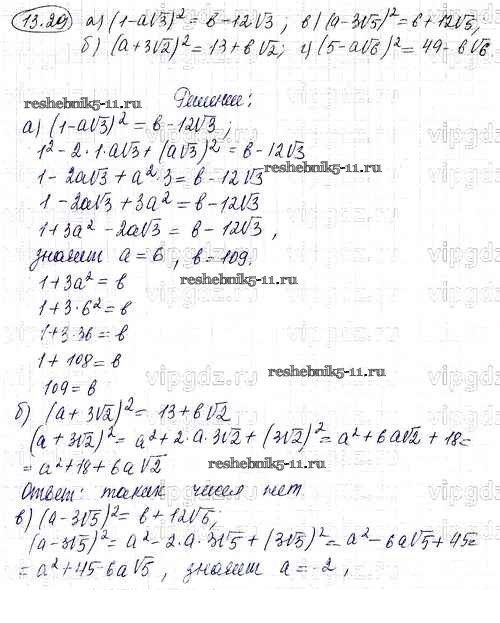 13.29 а) (1-a√3)² = в - 12√3 ; в) (a-3√5)² = в + 12√5,
б) (a+3√2)² = 13 + в√2; г) (5-a√6)² = 49 - в√6
reshebnik5-11.ru Решение:
а) (1-a√3)² = в - 12√3 ;
1² - 2·1·a√3 + (a√3)² = в - 12√3
1 - 2a√3 + a²·3 = в - 12√3
1 - 2a√3 + 3a² = в - 12√3
1 + 3a² - 2a√3 = в - 12√3 ,
значит a = 6 , в = 109.
reshebnik5-11.ru
1 + 3a² = в
1 + 3·6² = в
1 + 3·36 = в
1 + 108 = в
reshebnik5-11.ru
109 = в
б) (a + 3√2)² = 13 + в√2
(a + 3√2)² = a² + 2·a·3√2 + (3√2)² = a² + 6a√2 + 18 =
= a² + 18 + 6a√2
reshebnik5-11.ru
Ответ: таких чисел нет
в) (a-3√5)² = в + 12√5,
(a-3√5)² = a² - 2·a·3√5 + (3√5)² = a² - 6a√5 + 45 =
= a² + 45 - 6a√5 , значит a = -2 ,
vipgdz.ru